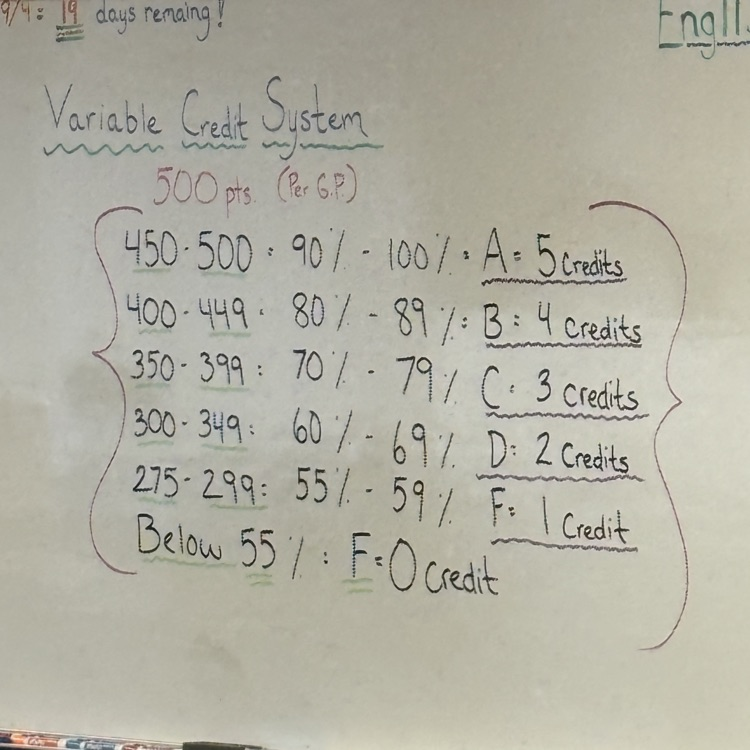 9/4: 19 days remaing!
Engl
Variable Credit System
500 pts. (Per G.P.)
450 - 500 : 90% - 100% : A = 5 Credits
400 - 449 : 80% - 89% : B : 4 Credits
350 - 399 : 70% - 79% C : 3 Credits
300 - 349 : 60% - 69% D : 2 Credits
275 - 299 : 55% - 59% F : 1 Credit
Below 55% : F = 0 Credit